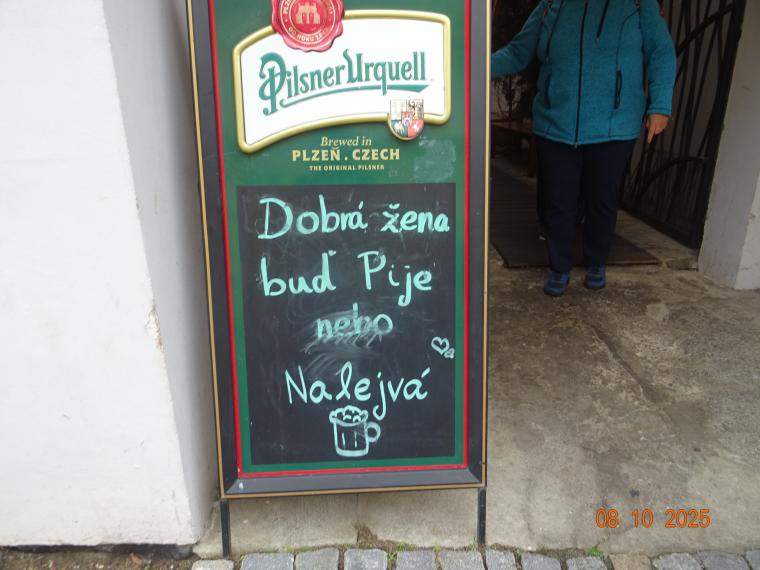 Pilsner Urquell
Brewed in
PLZEŇ . CZECH
THE ORIGINAL PILSNER
Dobrá žena
buď Pije
nebo
Nalejvá
08 10 2025